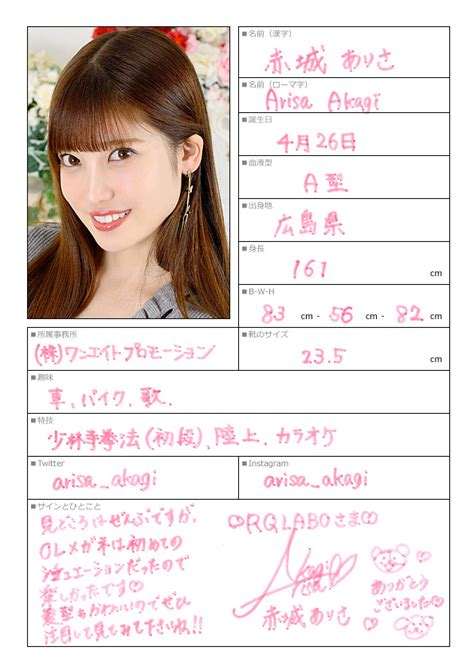 ■名前（漢字）
赤城 ありさ
■名前（ローマ字）
Arisa Akagi
■誕生日
4月26日
■血液型
A型
■出身地
広島県
■身長
161 cm
■B-W-H
83 cm - 56 cm - 82 cm
■所属事務所
(株)ワンエイトプロモーション
■靴のサイズ
23.5 cm
■趣味
車、バイク、歌、
■特技
少林寺拳法(初段)、陸上、カラオケ
■Twitter
arisa_akagi
■Instagram
arisa_akagi
■サインとひとこと
見どころはぜんぶですが、
OLメガネは初めての
シチュエーションだったので
楽しかったです♡
髪型もかわいいのでぜひ
注目して見てみて下さいね!!
♡RQLABOさま♡
Akagi
赤城ありさ
ありがとう
ございました♡